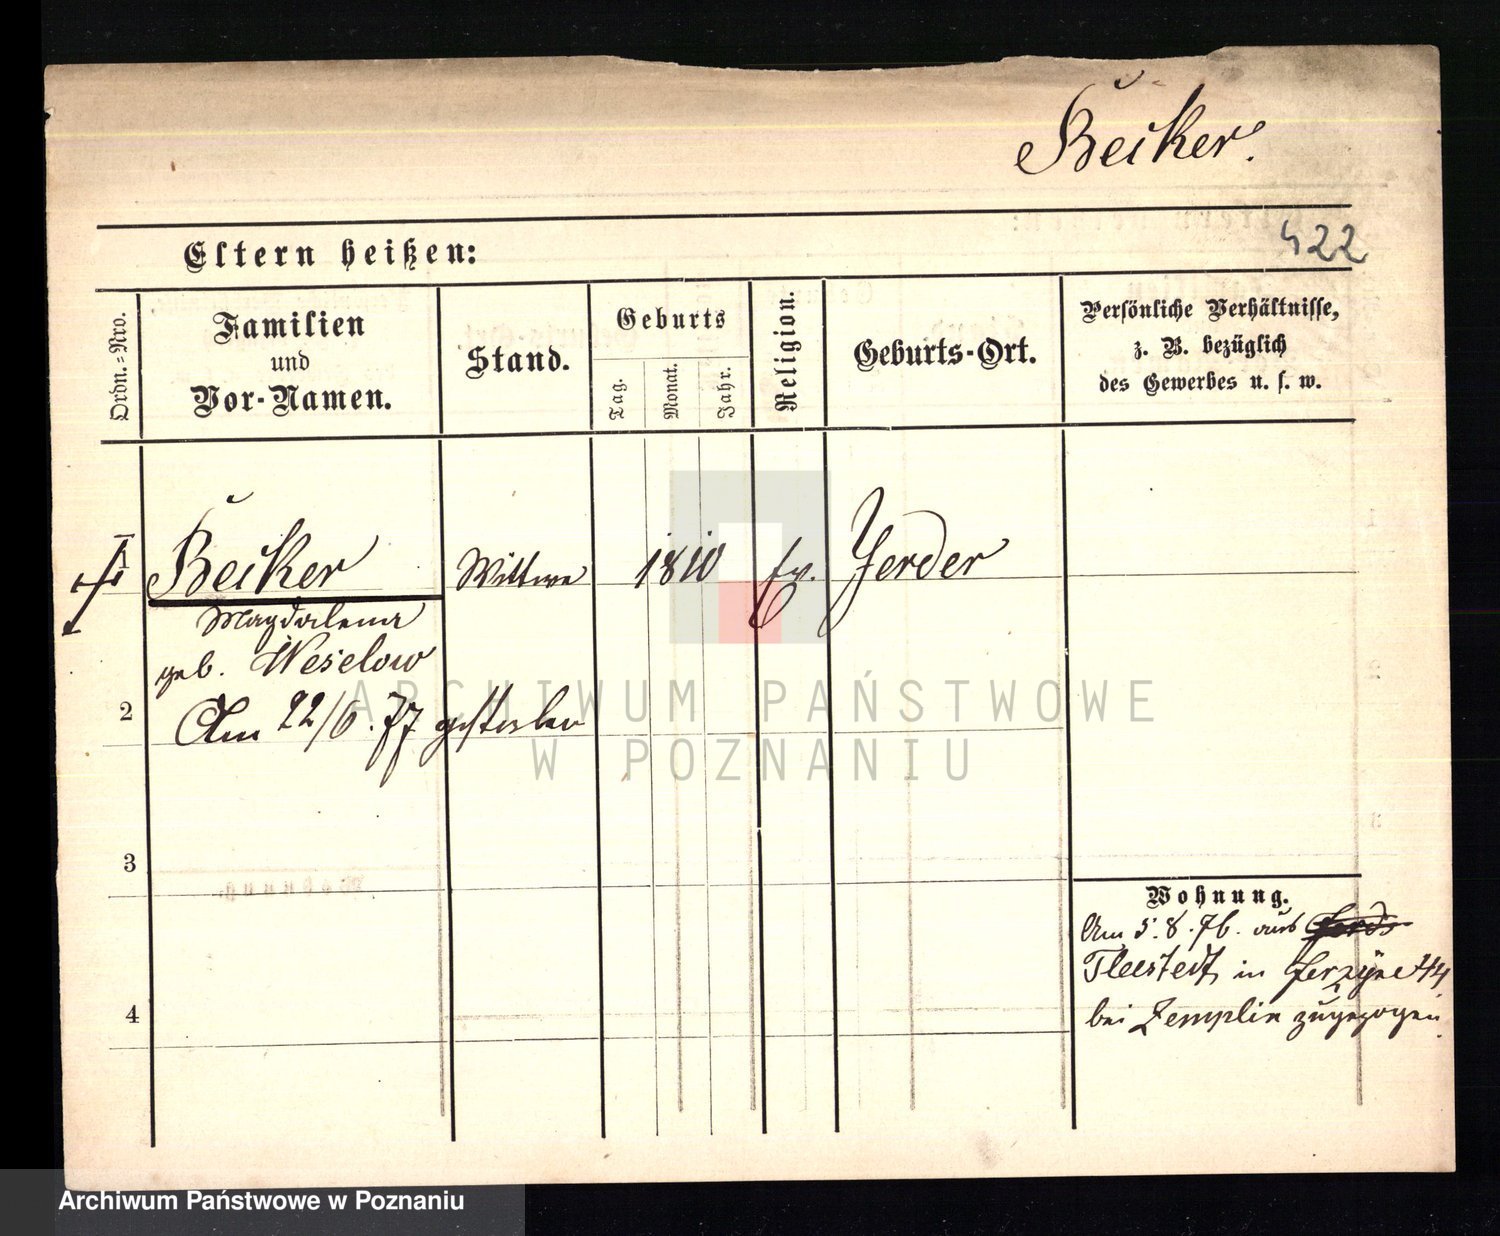 Becker.
422
Eltern heißen:
Ordn.=Nro.
Familien
und
Vor-Namen.
Stand.
Geburts
Tag.
Monat.
Jahr.
Religion.
Geburts-Ort.
Persönliche Verhältnisse,
z. B. bezüglich
des Gewerbes u. s. w.
1 Becker Wittwe 1810 Ev.
Magdalena
geb. Weselow
2 Am 22/6. 77 gestorben
3
4
Wohnung.
Am 5.8.76. aus
in Jerzyce 44
bei Zemplin zugezogen.
ARCHIWUM PAŃSTWOWE
W POZNANIU
Archiwum Państwowe w Poznaniu